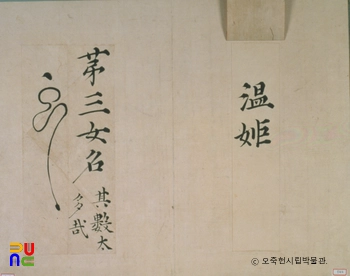 溫姫
第三女名
其數太
多哉
PUNC
ⓒ 오죽헌시립박물관.